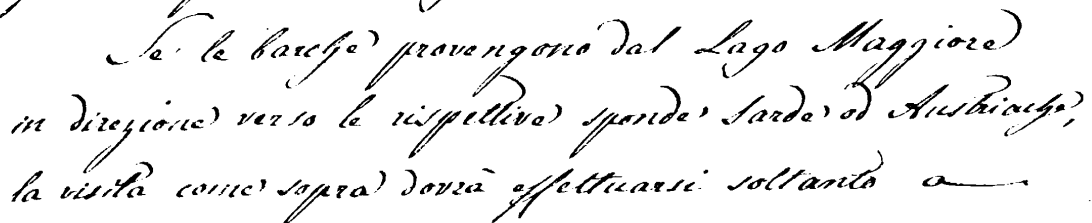 Se le barche provengono dal Lago Maggiore
in direzione verso le rispettive sponde Sarde od Austriache,
la visita come sopra dovrà effettuarsi soltanto a